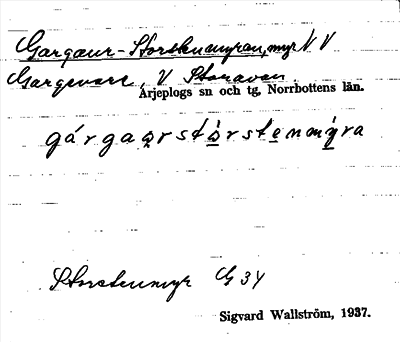 Gargaur-Storstenmyran, myr N V
Gargevare, V Storaven
Arjeplogs sn och tg, Norrbottens län.
gárgaərstòrstenmýra
Storstenmyr G 34
Sigvard Wallström, 1937.